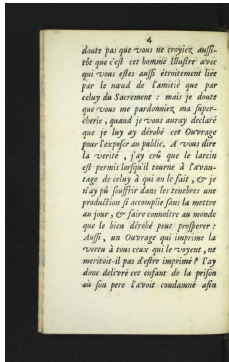 4
doute pas que vous ne croyiez aussi-
tôt que c'est cet homme Illustre avec
qui vous estes aussi étroitement liée
par le nœud de l'amitié que par
celuy du Sacrement : mais je doute
que vous me pardonniez ma super-
cherie, quand je vous auray declaré
que je luy ay dérobé cet Ouvrage
pour l'exposer au public. A vous dire
la verité, j'ay crû que le larcin
est permis lorsqu'il tourne à l'avan-
tage de celuy à qui on le fait, & je
n'ay pû souffrir dans les tenebres une
production si accomplie sans la mettre
au jour, & faire connoître au monde
que le bien dérobé peut prosperer :
Aussi, un Ouvrage qui imprime la
vertu à tous ceux qui le voyent, ne
meritoit-il pas d'estre imprimé ? J'ay
donc delivré cet enfant de la prison
où son pere l'avoit condamné afin